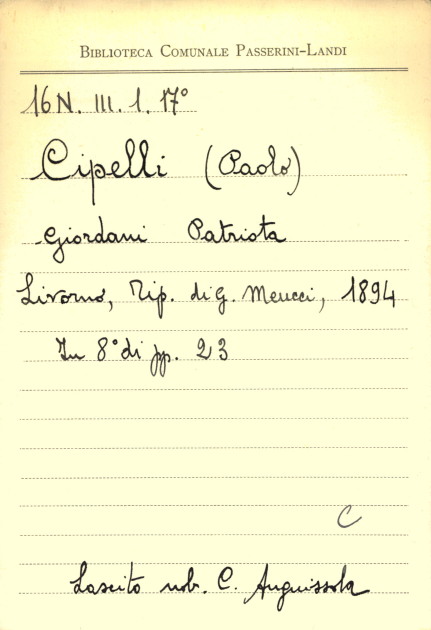 BIBLIOTECA COMUNALE PASSERINI-LANDI
16 N. III. 1. 17°
Cipelli (Paolo)
Giordani Patriota
Livorno, Tip. di G. Meucci, 1894
In 8° di pp. 23
C
Lascito nob. C. Anguissola